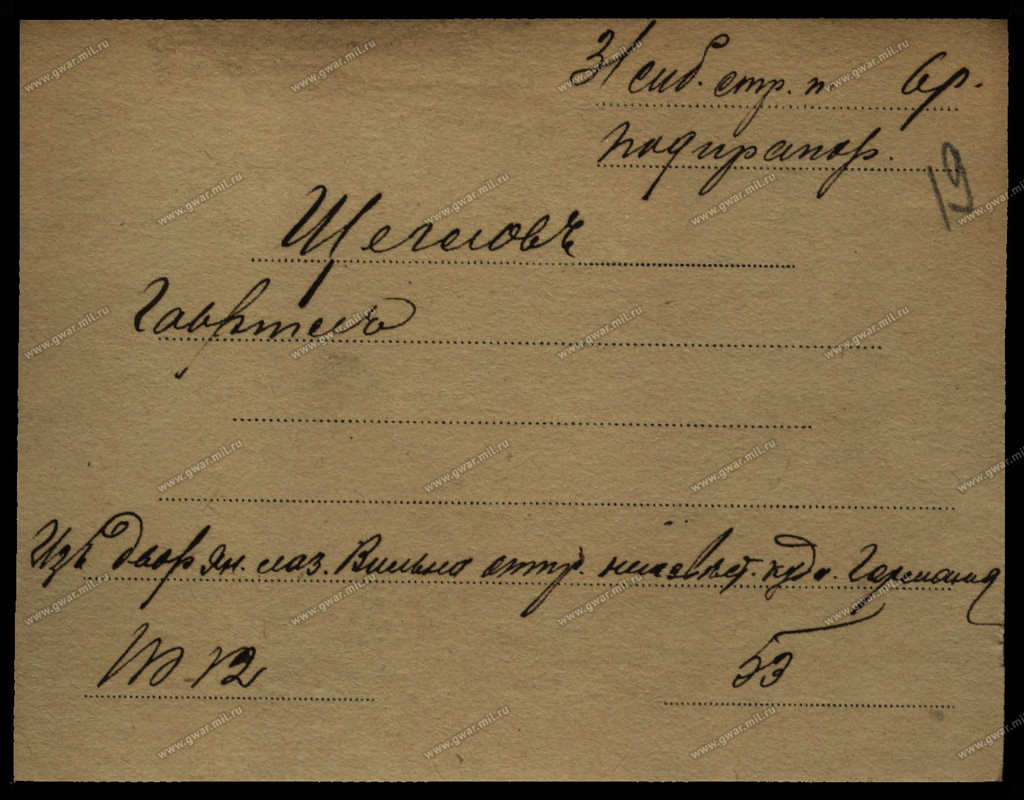 31 сиб. стр. п. 6 р.
подпрапор.
19
Щегловъ
Гавріилъ
Изъ дворян. лаз. Вильно отпр. неизвѣст. куда. Германия
12
53
www.gwar.mil.ru